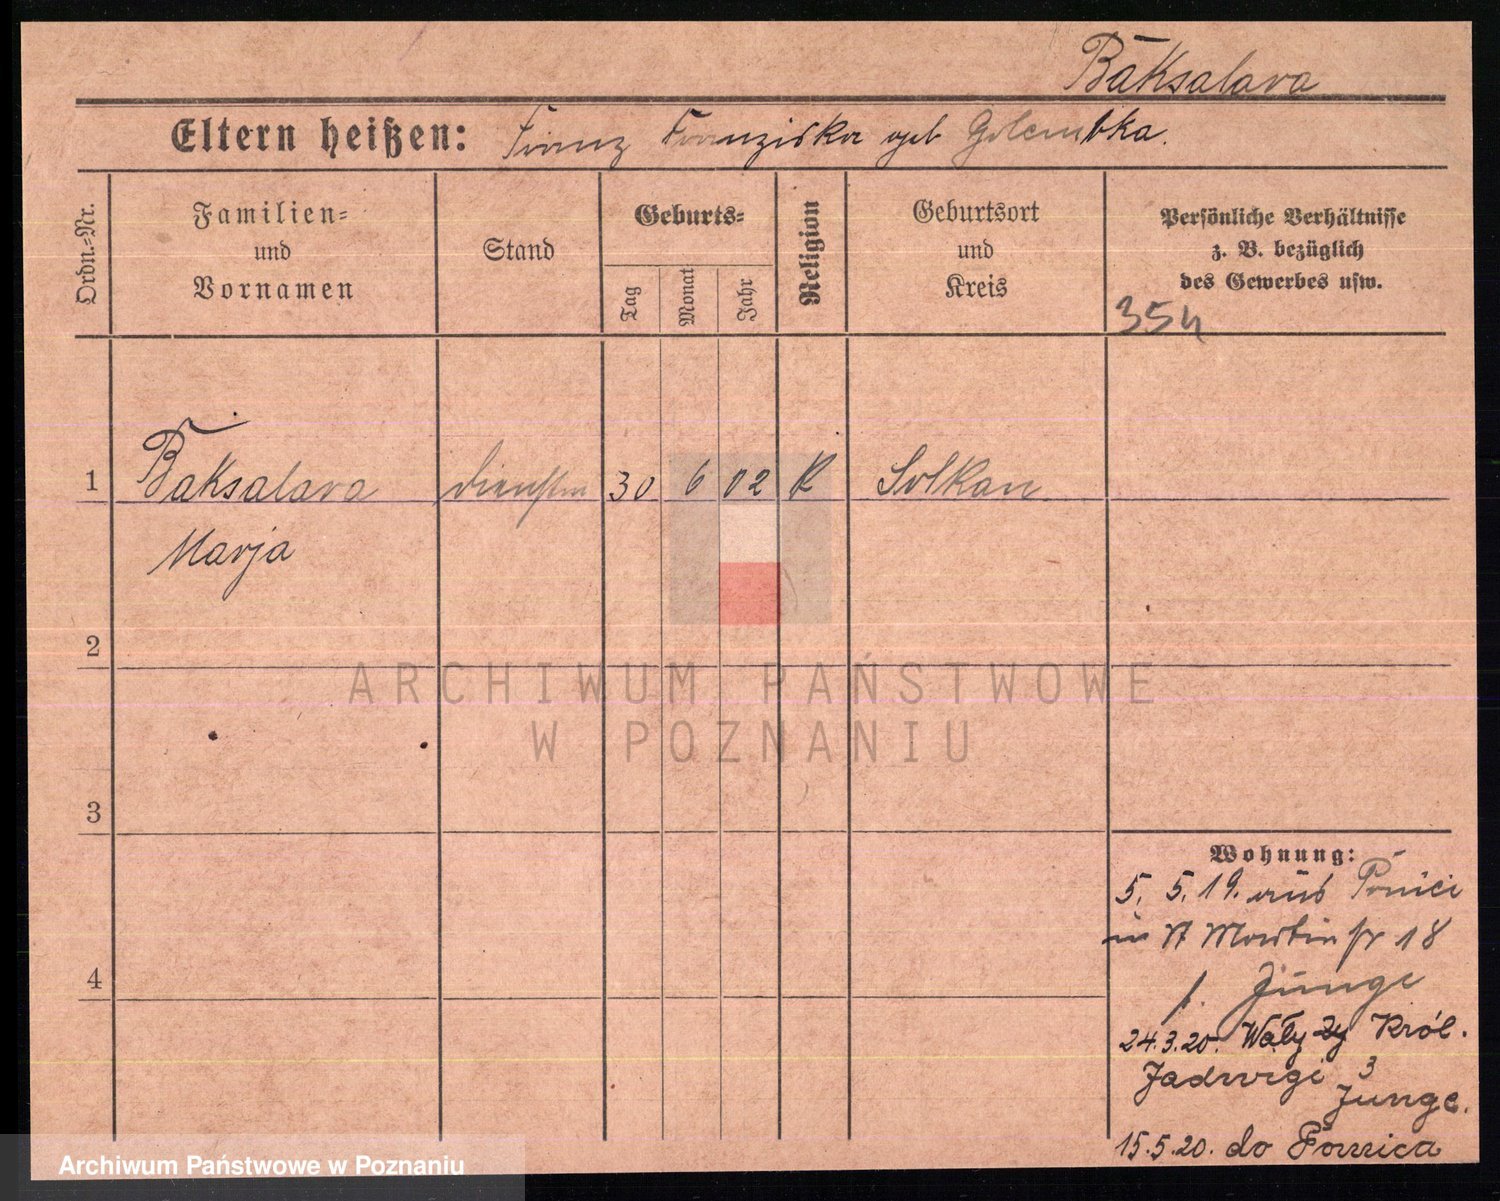 Baksalara
Eltern heißen: Franz Franziska geb Golembka.
Ordn.=Nr.
Familien=
und
Vornamen
Stand
Geburts=
Tag
Monat
Jahr
Religion
Geburtsort
und
Kreis
Persönliche Verhältnisse
z. B. bezüglich
des Gewerbes usw.
354
1 Baksalara dienstm 30 6 02 K Solkan
Marja
2
3
4
Wohnung:
5. 5. 19. aus
in St Martin str 18
b. Junge
24.3.20. Wały Król.
Jadwigi 3
Junge.
15.5.20. do
ARCHIWUM PAŃSTWOWE
W POZNANIU
Archiwum Państwowe w Poznaniu